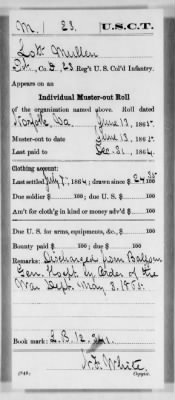 M. | 23. | U.S.C.T.
Mullen
Pvt., Co. D, 23 Reg't U. S. Col'd Infantry.
Appears on an
Individual Muster-out Roll
of the organization named above. Roll dated
Norfolk, Va. June 13, 1865.
Muster-out to date June 13, 1865.
Last paid to Dec. 31, 1864.
Clothing account:
Last settled July 1, 1864; drawn since $ 24 38/100
Due soldier $ 100; due U. S. $ 100
Am't for cloth'g in kind or money adv'd $ 100
Due U. S. for arms, equipments, &c., $ 100
Bounty paid $ 100; due $ 100
Remarks: Discharged from Balfour
Gen. Hospt. by Order of the
War Dept. May 3, 1865.
Book mark: L.B. 12.
White
Copyist.